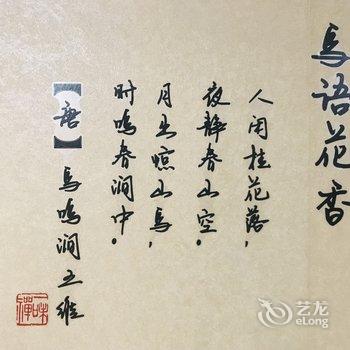 鸟语花香
人闲桂花落，
夜静春山空。
月出惊山鸟，
时鸣春涧中。
唐 鸟鸣涧王维
艺龙
eLong